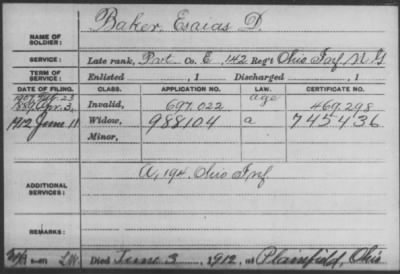 NAME OF SOLDIER: Baker, Esaias D.
SERVICE: Late rank, Pvt. Co. E, 142 Reg't Ohio Inf N G
TERM OF SERVICE: Enlisted , 1 Discharged , 1
DATE OF FILING. CLASS. APPLICATION NO. LAW. CERTIFICATE NO.
age
1889 Apr. 3, Invalid, 697.022 469.298
1912 June 11 Widow, 988104 a 745436
Minor,
ADDITIONAL SERVICES: A, 194. Ohio Inf
REMARKS:
Died June 3, 1912, at Plainfield, Ohio